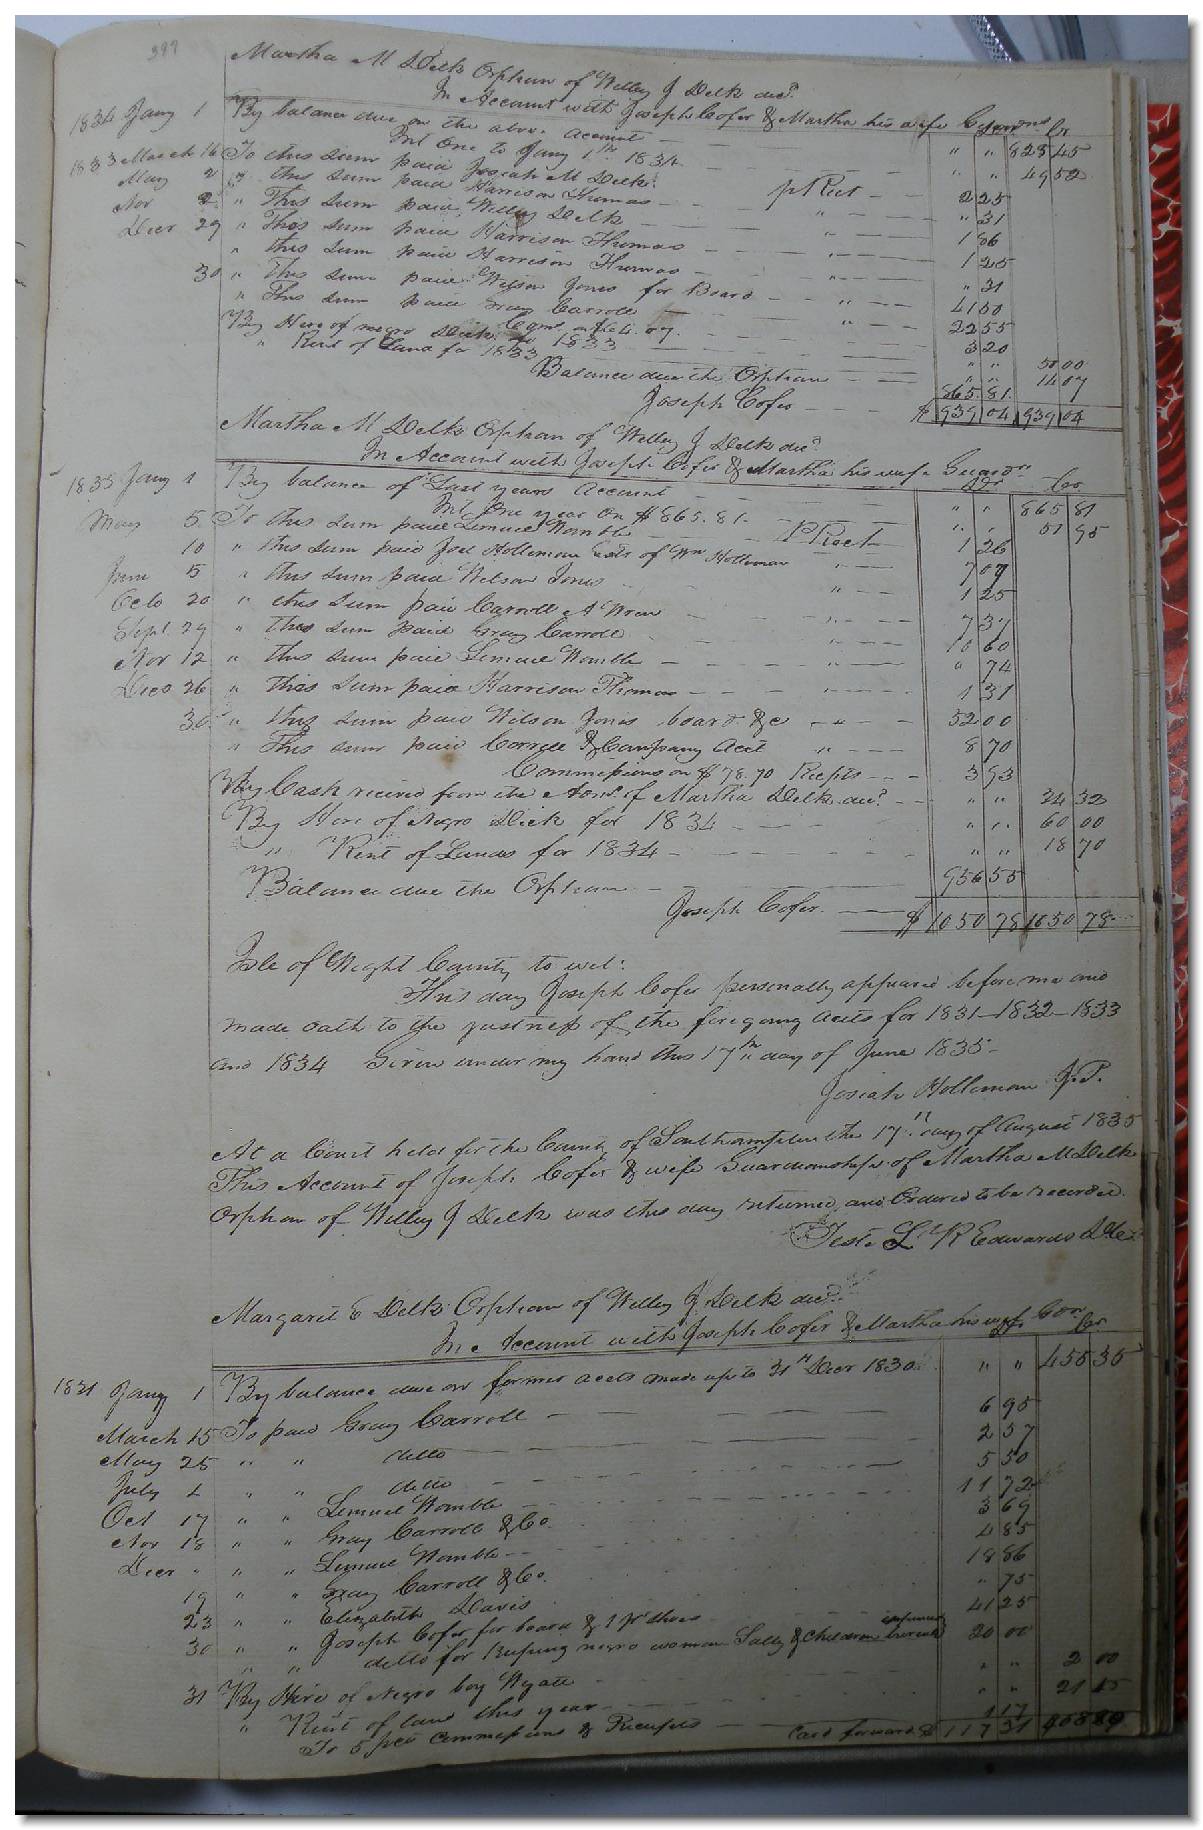 399
Martha M Delk Orphan of Willey J Delk decd.
In Account with Joseph Cofer & Martha his wife Dr Cr
1834 Jany 1 By balance due on the above account — " " 823 45
Int One to Jany 1st 1834 — " " 49 50
1833 March 16 To this sum paid Josiah M Delk p Rect — 2 25
May 2 " this sum paid Harrison Thomas — " — " 31
Nov 2 " This sum paid Willey Delk — " — 1 06
Decr 29 " This sum paid Harrison Thomas — " — 1 25
" this sum paid Harrison Thomas — " — " 31
30 " This sum paid Wilson Jones for Board — " — 41 00
" This sum paid Gray Carroll — " — 22 55
Coms. on $64.07 — 3 20
By Hire of negro Dick for 1833 — " " 50 00
" Rent of Land for 1833 — " " 14 07
Balance due the Orphan — 865.81.
Joseph Cofer — $ 939 04 939 04
Martha M Delk Orphan of Willey J Delk decd.
In Account with Joseph Cofer & Martha his wife Guardns Dr Cr
1835 Jany 1 By balance of Last years Account " " 865 81
Int One year on $865.81. — " " 51 95
May 5 To this sum paid Lemuel Womble P Rect — 1 26
10 " this sum paid Joel Holleman Exts of Wm Holleman " — 7 07
June 5 " this sum paid Wilson Jones " — 1 25
Octo 20 " this sum paid Carroll & Wren — " — 7 37
Sept. 29 " this sum paid Gray Carroll " — 10 60
Nov 12 " this sum paid Lemuel Womble — " — " 74
Deco 26 " This sum paid Harrison Thomas — " — 1 31
30 " this sum paid Wilson Jones board &c — " — 52 00
" This sum paid Correll & Company Acct " — 8 70
Commissions on $78.70 Receipts — 3 93
By Cash received from the Adms. of Martha Delk decd. — " " 34 32
By Hire of Negro Dick for 1834 — " " 60 00
" Rent of Lands for 1834 — " " 18 70
Balance due the Orphan — 956 55
Joseph Cofer. — $ 1050 78 1050 78
Isle of Wight County to wit:
This day Joseph Cofer personally appeared before me and
made oath to the justness of the foregoing accts for 1831–1832–1833
and 1834 Given under my hand this 17th day of June 1835
Josiah Holleman J.P.
At a Court held for the County of Southampton the 17th day of August 1835
This Account of Joseph Cofer & wife Guardianship of Martha M Delk
Orphan of Willey J Delk was this day returned and Ordered to be recorded.
Teste L R Edwards
Margaret E Delk Orphan of Willey J Delk decd.
In Account with Joseph Cofer & Martha his wife Dr Cr
1831 Jany 1 By balance due on former accts made up to 31st Decr 1830. " " 455 35
March 15 To paid Gray Carroll — 6 95
May 25 " " ditto — 2 57
July 2 " " ditto — 5 50
Oct 17 " " Lemuel Womble — 11 72
Nov 18 " " Gray Carroll & Co. 3 69
Decr " " " Lemuel Womble — 4 85
19 " " Gray Carroll & Co. 18 86
23 " " Elizabeth Davis " 75
30 " " Joseph Cofer for board & 1 pr shoes 41 25
" " ditto for keeping negro woman Sally & children 20 00
31 By Hire of Negro boy Wyatt — " " 2 00
" Rent of land this year — " " 21 45
To 5 per commissions & Receipts — 1 17
Card forward $ 117 31